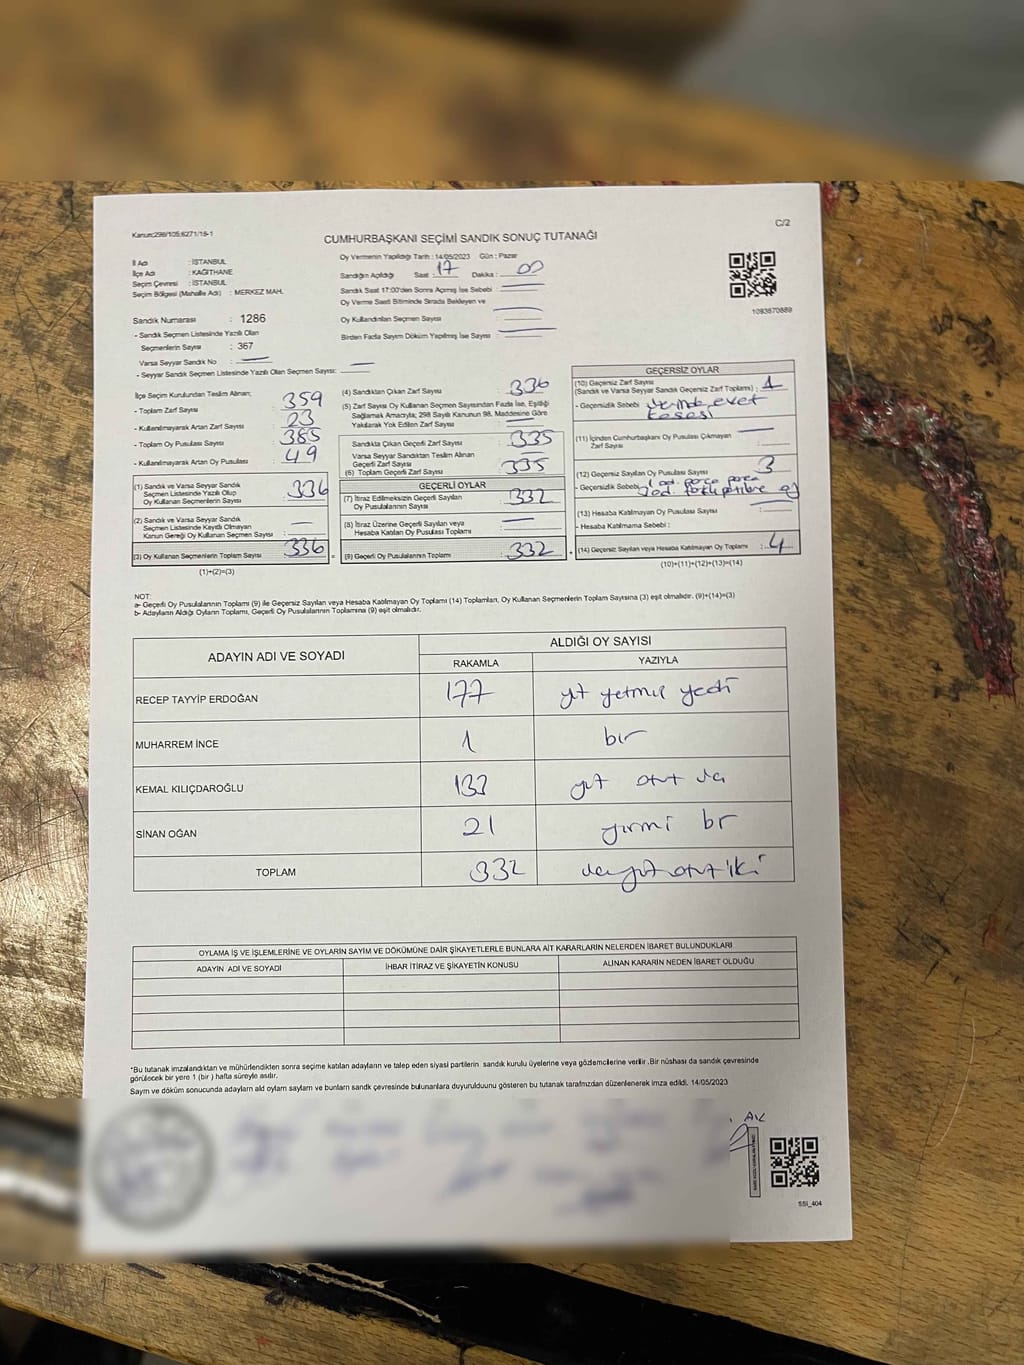 Kanun:298/105;6271/15-1
C/2
CUMHURBAŞKANI SEÇİMİ SANDIK SONUÇ TUTANAĞI
İl Adı : İSTANBUL
İlçe Adı : KAĞITHANE
Seçim Çevresi : İSTANBUL
Seçim Bölgesi (Mahalle Adı) : MERKEZ MAH.
Oy Vermenin Yapıldığı Tarih : 14/05/2023 Gün : Pazar
Sandığın Açıldığı Saat : 17 Dakika : 00
Sandık Saat 17:00'den Sonra Açılmış İse Sebebi :
Oy Verme Saati Bitiminde Sırada Bekleyen ve
Oy Kullandırılan Seçmen Sayısı :
Birden Fazla Sayım Döküm Yapılmış İse Sayısı :
1093870889
Sandık Numarası : 1286
- Sandık Seçmen Listesinde Yazılı Olan
Seçmenlerin Sayısı : 367
Varsa Seyyar Sandık No :
- Seyyar Sandık Seçmen Listesinde Yazılı Olan Seçmen Sayısı:
İlçe Seçim Kurulundan Teslim Alınan;
- Toplam Zarf Sayısı : 359
- Kullanılmayarak Artan Zarf Sayısı : 23
- Toplam Oy Pusulası Sayısı : 385
- Kullanılmayarak Artan Oy Pusulası : 49
(1) Sandık ve Varsa Seyyar Sandık
Seçmen Listesinde Yazılı Olup
Oy Kullanan Seçmenlerin Sayısı : 336
(2) Sandık ve Varsa Seyyar Sandık
Seçmen Listesinde Kayıtlı Olmayan
Kanun Gereği Oy Kullanan Seçmen Sayısı :
(3) Oy Kullanan Seçmenlerin Toplam Sayısı : 336
(1)+(2)=(3)
(4) Sandıktan Çıkan Zarf Sayısı : 336
(5) Zarf Sayısı Oy Kullanan Seçmen Sayısından Fazla İse, Eşitliği
Sağlamak Amacıyla; 298 Sayılı Kanunun 98. Maddesine Göre
Yakılarak Yok Edilen Zarf Sayısı :
Sandıkta Çıkan Geçerli Zarf Sayısı : 335
Varsa Seyyar Sandıktan Teslim Alınan
Geçerli Zarf Sayısı :
(6) Toplam Geçerli Zarf Sayısı : 335
GEÇERLİ OYLAR
(7) İtiraz Edilmeksizin Geçerli Sayılan
Oy Pusulasının Sayısı : 332
(8) İtiraz Üzerine Geçerli Sayılan veya
Hesaba Katılan Oy Pusulası Toplamı :
(9) Geçerli Oy Pusulalarının Toplamı : 332
GEÇERSİZ OYLAR
(10) Geçersiz Zarf Sayısı
(Sandık ve Varsa Seyyar Sandık Geçersiz Zarf Toplamı) : 1
- Geçersizlik Sebebi : üzerinde evet
kaşesi
(11) İçinden Cumhurbaşkanı Oy Pusulası Çıkmayan
Zarf Sayısı :
(12) Geçersiz Sayılan Oy Pusulası Sayısı : 3
- Geçersizlik Sebebi : 1 ad. parça parça
2 ad. farklı
(13) Hesaba Katılmayan Oy Pusulası Sayısı :
- Hesaba Katılmama Sebebi :
(14) Geçersiz Sayılan veya Hesaba Katılmayan Oy Toplamı : 4
(10)+(11)+(12)+(13)=(14)
NOT:
a- Geçerli Oy Pusulalarının Toplamı (9) ile Geçersiz Sayılan veya Hesaba Katılmayan Oy Toplamı (14) Toplamları, Oy Kullanan Seçmenlerin Toplam Sayısına (3) eşit olmalıdır. (9)+(14)=(3)
b- Adayların Aldığı Oyların Toplamı, Geçerli Oy Pusulalarının Toplamına (9) eşit olmalıdır.
ADAYIN ADI VE SOYADI ALDIĞI OY SAYISI
RAKAMLA YAZIYLA
RECEP TAYYİP ERDOĞAN 177 yüz yetmiş yedi
MUHARREM İNCE 1 bir
KEMAL KILIÇDAROĞLU 133 yüz otuz üç
SİNAN OĞAN 21 yirmi bir
TOPLAM 332 üçyüz otuz iki
OYLAMA İŞ VE İŞLEMLERİNE VE OYLARIN SAYIM VE DÖKÜMÜNE DAİR ŞİKAYETLERLE BUNLARA AİT KARARLARIN NELERDEN İBARET BULUNDUKLARI
ADAYIN ADI VE SOYADI İHBAR İTİRAZ VE ŞİKAYETİN KONUSU ALINAN KARARIN NEDEN İBARET OLDUĞU
*Bu tutanak imzalandıktan ve mühürlendikten sonra seçime katılan adayların ve talep eden siyasi partilerin sandık kurulu üyelerine veya gözlemcilerine verilir. Bir nüshası da sandık çevresinde
görülecek bir yere 1 (bir) hafta süreyle asılır.
Sayım ve döküm sonucunda adayların ald oyların sayların ve bunların sandk çevresinde bulunanlara duyurulduunu gösteren bu tutanak tarafmzdan düzenlenerek imza edildi. 14/05/2023
SSI_404